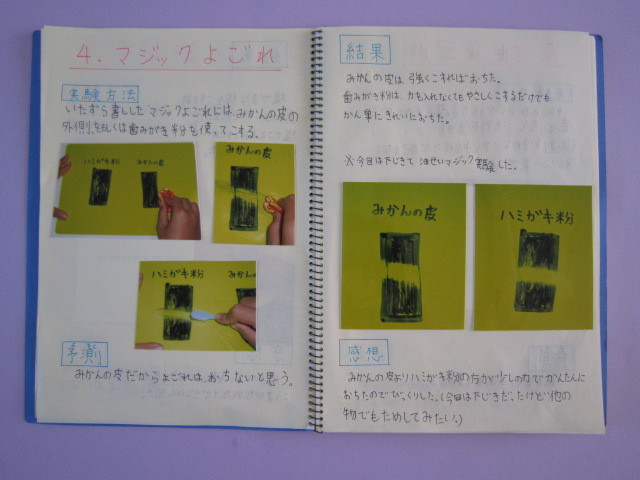 4. マジックよごれ
実験方法
いたずら書きした マジックよごれには、みかんの皮の
外側、もしくは歯みがき粉を使ってこする。
ハミガキ粉
みかんの皮
みかんの皮
ハミガキ粉
みかんの
予測
みかんの皮だからよごれは、おちないと思う。
結果
みかんの皮は、強くこすればおちた。
歯みがき粉は、力を入れなくてもやさしくこするだけでも
かん単にきれいにおちた。
※今回は下じきで 油せいマジック実験した。
みかんの皮
ハミガキ粉
感想
みかんの皮よりハミガキ粉の方が少しの力でかんたんに
おちたのでびっくりした。(今回は下じきだったけど他の
物でもためしてみたい。)